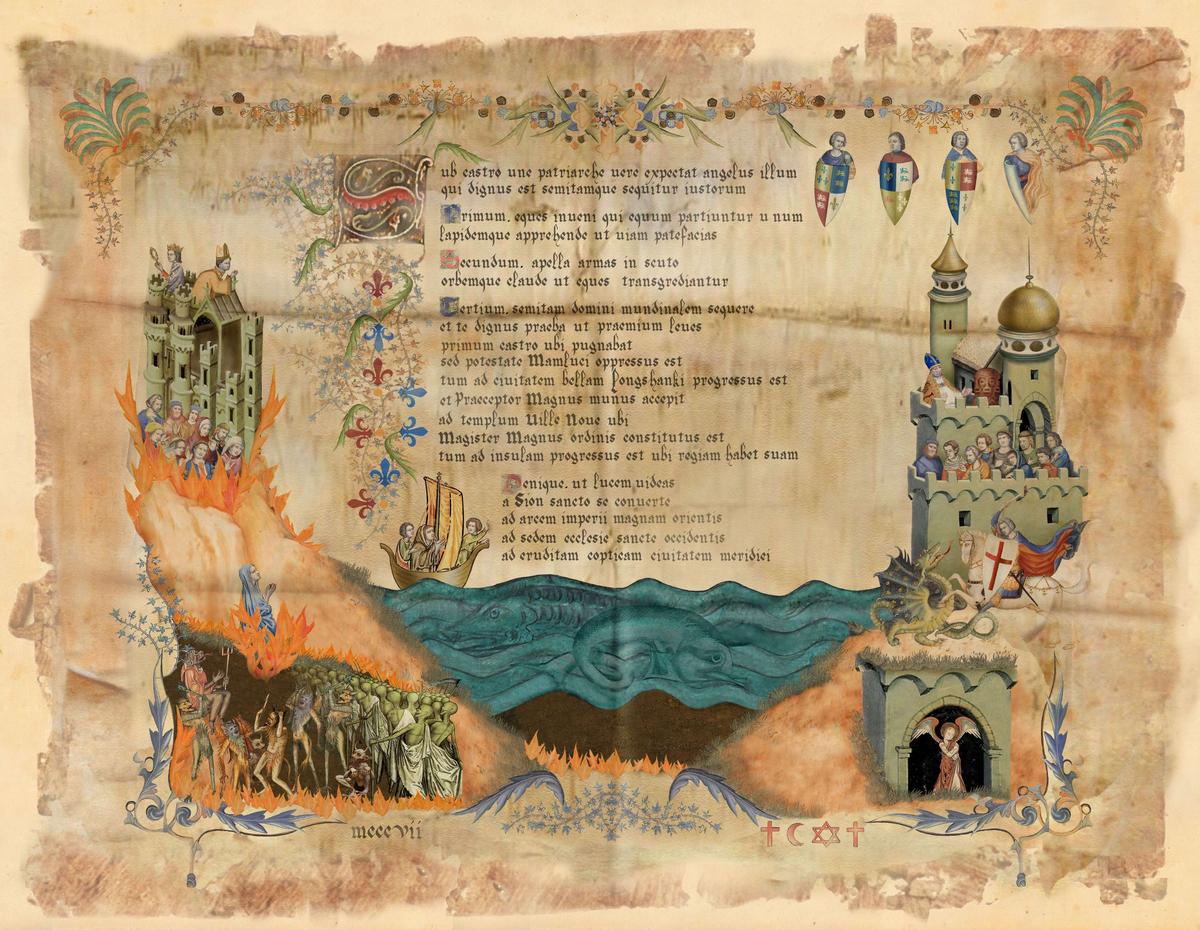 Sub castro une patriarche uere expectat angelus illum
qui dignus est semitamque sequitur iustorum
Primum. eques inueni qui equum partiuntur u num
lapidemque apprehende ut uiam patefacias
Secundum. apella armas in scuto
orbemque claude ut eques transgrediantur
Tertium. semitam domini mundinalem sequere
et te dignus praeba ut praemium leues
primum castro ubi pugnabat
sed potestate Mamluci oppressus est
tum ad ciuitatem bellam Longshanki progressus est
et Praeceptor Magnus munus accepit
ad templum Uille Noue ubi
Magister Magnus ordinis constitutus est
tum ad insulam progressus est ubi regiam habet suam
Denique. ut lucem uideas
a Sion sancto se conuerte
ad arcem imperii magnam orientis
ad sedem ecclesie sancte occidentis
ad eruditam copticam ciuitatem meridiei
mcccvii